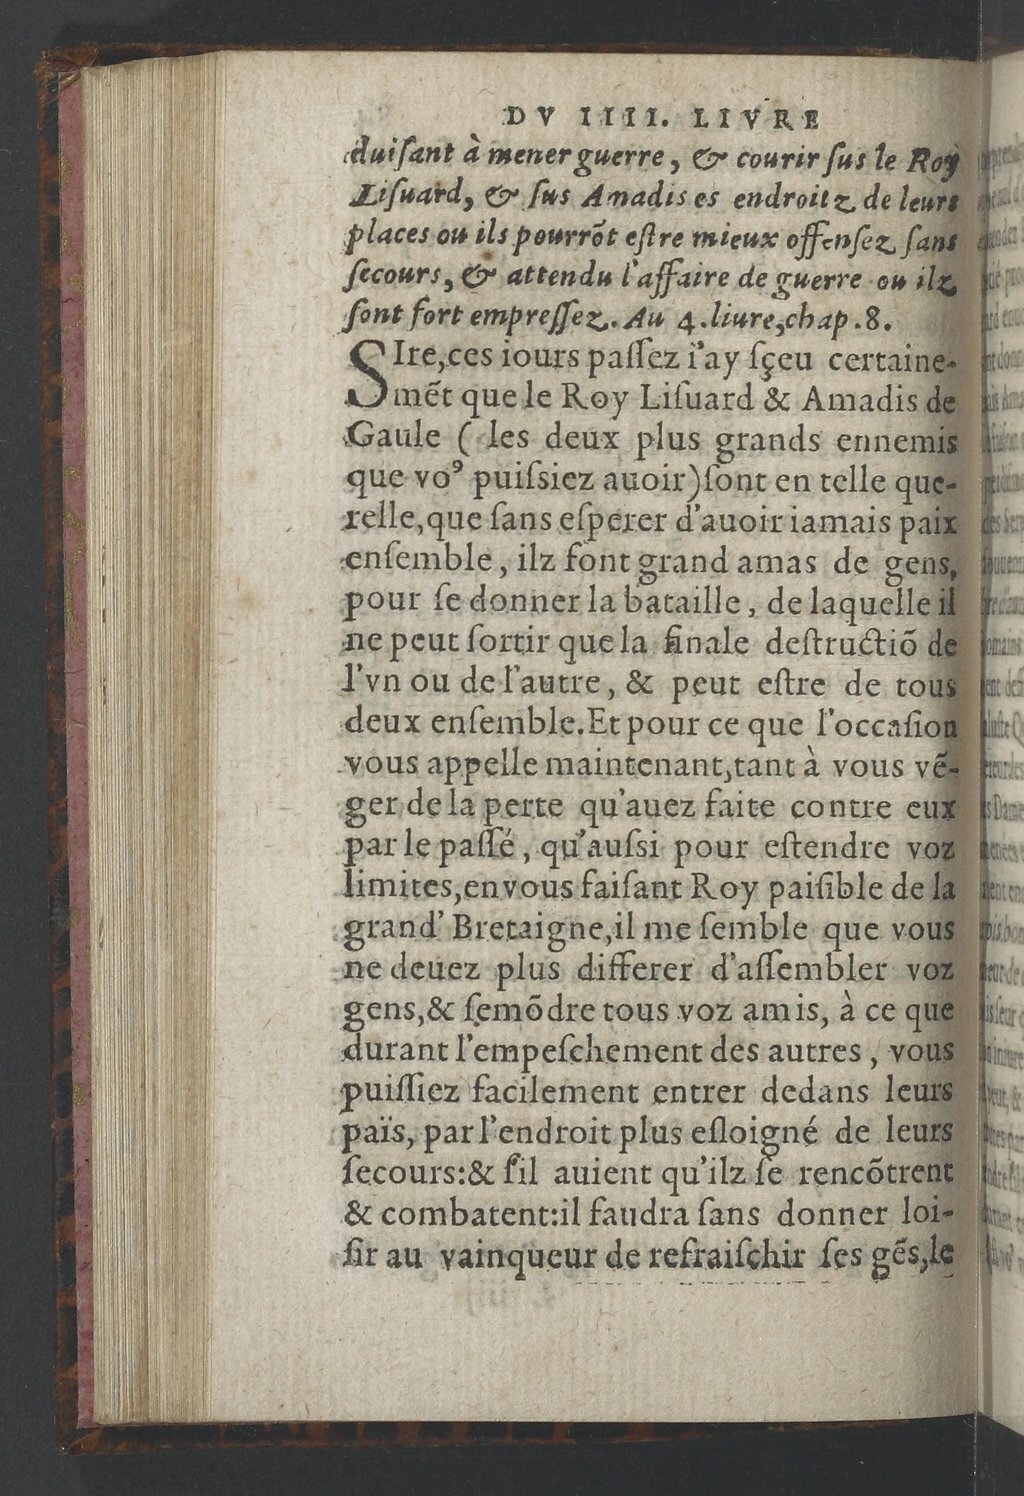 DV IIII. LIVRE
duiſant à mener guerre, & courir ſus le Roy
Liſuard, & ſus Amadis es endroitz de leurs
places ou ils pourrõt eſtre mieux offenſez ſans
ſecours, & attendu l'affaire de guerre ou ilz
ſont fort empreſſez. Au 4. liure, chap. 8.
SIre, ces iours paſſez i'ay ſçeu certaine-
mẽt que le Roy Liſuard & Amadis de
Gaule ( les deux plus grands ennemis
que voꝰ puiſsiez auoir) ſont en telle que-
relle, que ſans eſperer d'auoir iamais paix
enſemble, ilz font grand amas de gens,
pour ſe donner la bataille, de laquelle il
ne peut ſortir que la finale deſtructiõ de
l'vn ou de l'autre, & peut eſtre de tous
deux enſemble. Et pour ce que l'occaſion
vous appelle maintenant, tant à vous vẽ-
ger de la perte qu'auez faite contre eux
par le paſſé, qu'auſsi pour eſtendre voz
limites, en vous faiſant Roy paiſible de la
grand' Bretaigne, il me ſemble que vous
ne deuez plus differer d'aſſembler voz
gens, & ſemõdre tous voz amis, à ce que
durant l'empeſchement des autres, vous
puiſſiez facilement entrer dedans leurs
païs, par l'endroit plus eſloigné de leurs
ſecours: & ſ'il auient qu'ilz ſe rencõtrent
& combatent: il faudra ſans donner loi-
ſir au vainqueur de refraiſchir ſes gẽs, le